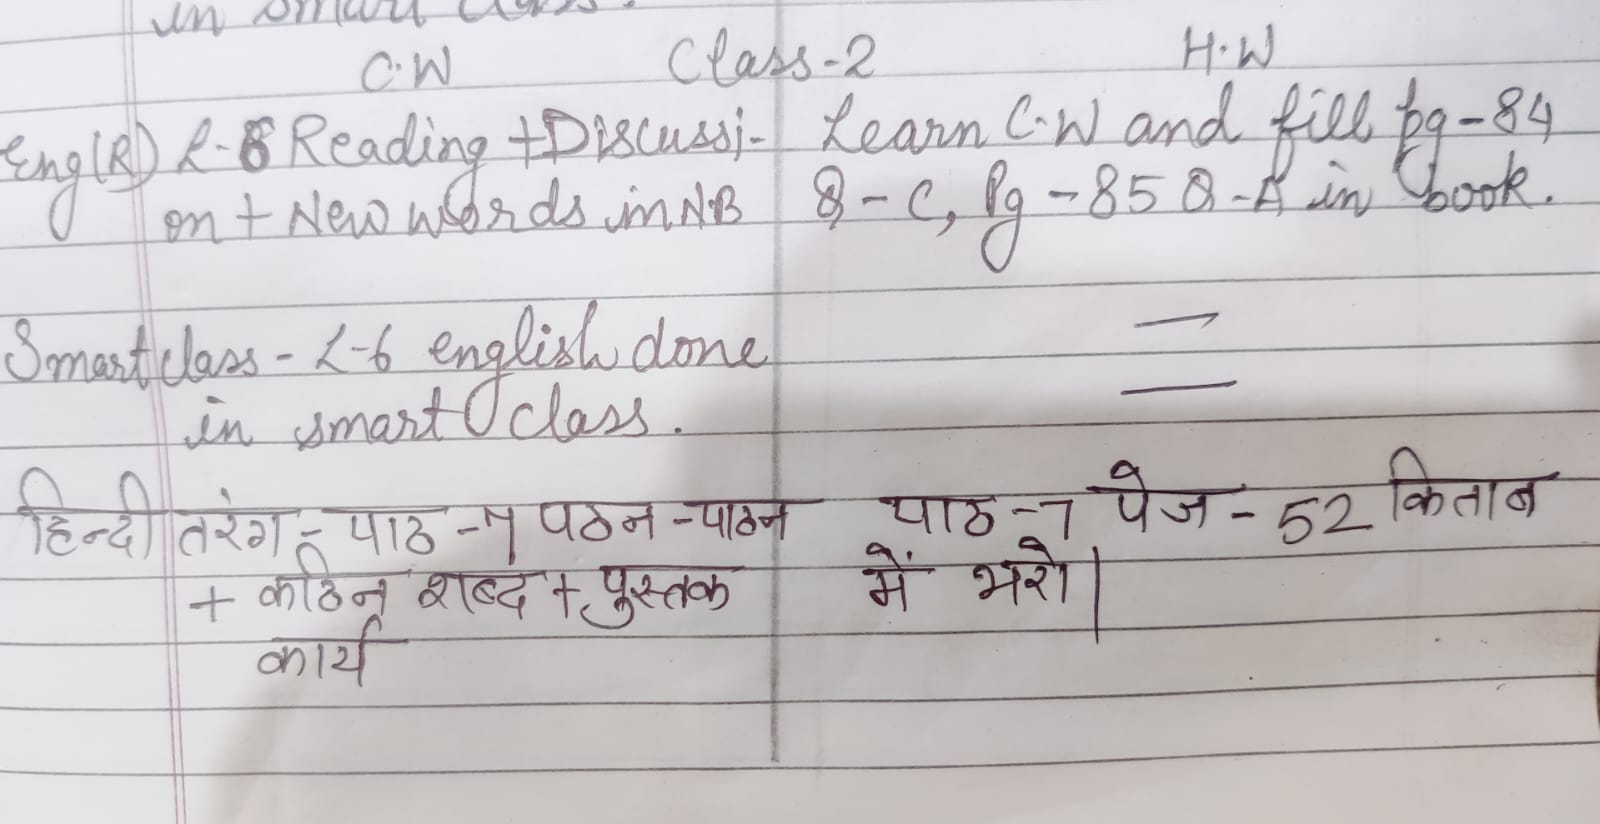 in smart class.
C.W Class-2 H.W
Eng(R) L-8 Reading + Discussi- Learn C.W and fill pg-84
on + New words in N.B Q-C, Pg-85 Q-A in book.
Smart class - L-6 english done
in smart class.
हिन्दी तरंग - पाठ -7 पठन -पाठन पाठ-7 पेज - 52 किताब
+ कठिन शब्द + पुस्तक में भरो|
कार्य